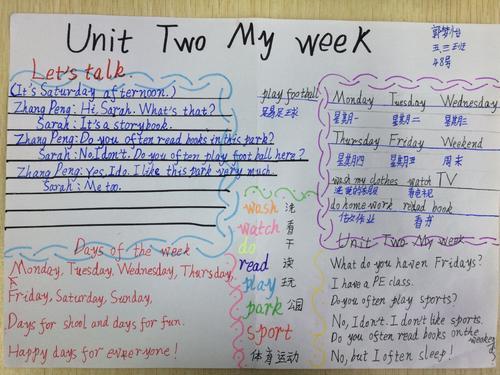 Unit Two My week
五、三班
48号
Let's talk.
(It's Saturday afternoon.)
Zhang Peng: Hi, Sarah. What's that?
Sarah: It's a storybook.
Zhang Peng: Do you often read books in this park?
Sarah: No, I don't. Do you often play football here?
Zhang Peng: Yes, I do. I like this park very much.
Sarah: Me too.
play football
踢足球
Monday Tuesday Wednesday
星期一 星期二 星期三
Thursday Friday Weekend
星期四 星期五 周末
wash my clothes watch TV
看电视
do homework read book
做作业 看书
wash 洗
watch 看
do 干
read 读
play 玩
park 公园
sport
体育运动
Days of the week
Monday, Tuesday, Wednesday, Thursday,
Friday, Saturday, Sunday,
Days for shool and days for fun.
Happy days for everyone!
Unit Two My week
What do you haven Fridays?
I have a PE class.
Do you often play sports?
No, I don't. I don't like sports.
Do you often read books on the weekend?
No, but I often sleep!